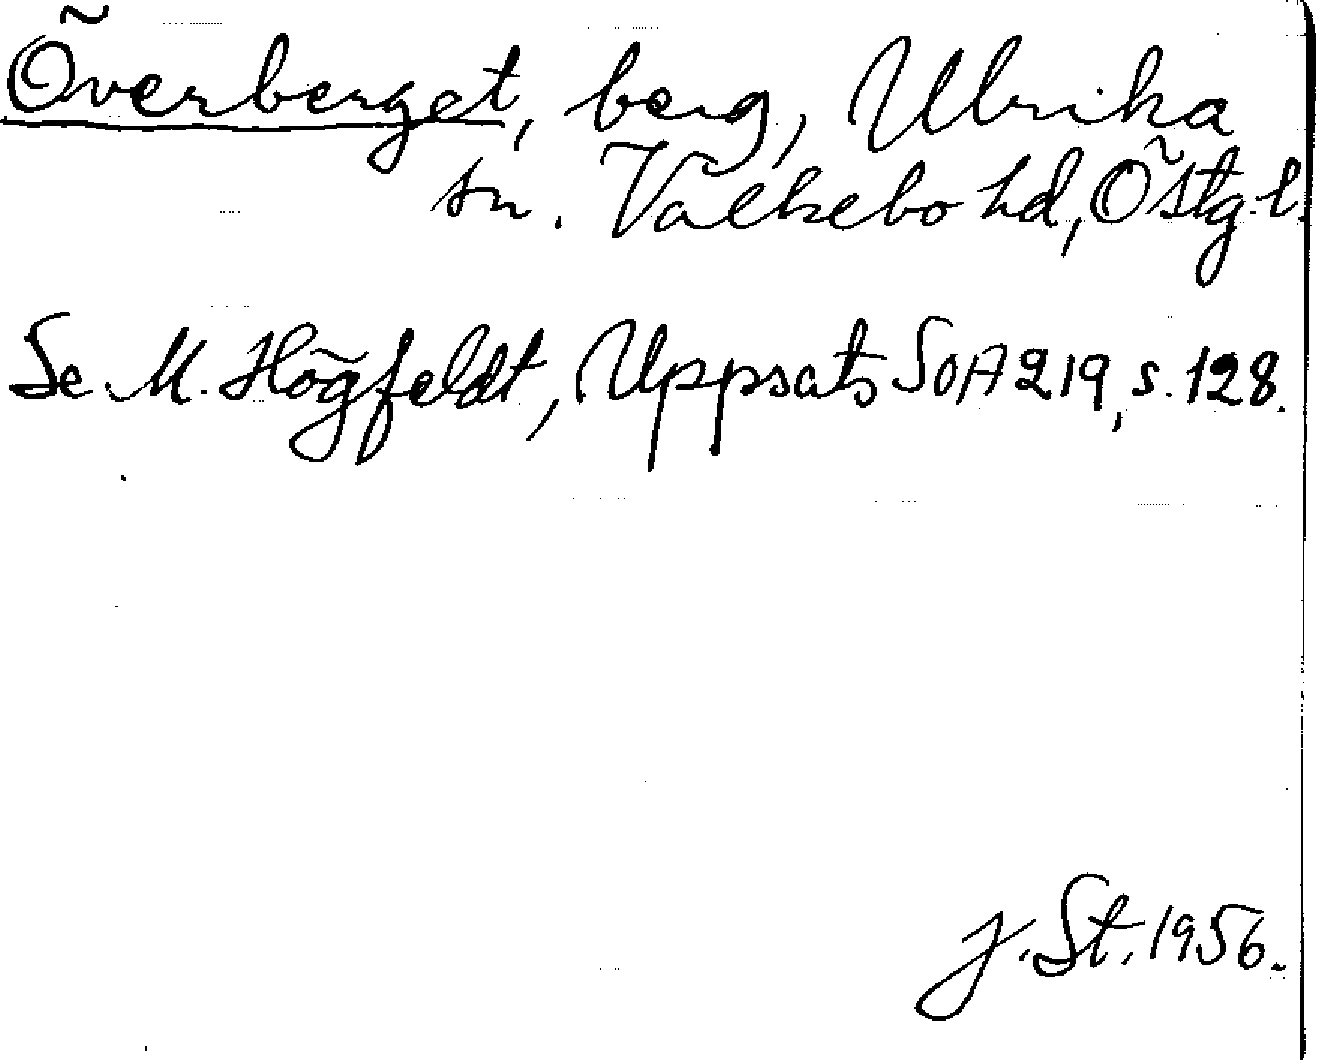 Överberget, berg, Ulrika
sn. Valkebo hd, Östg.l.
Se M. Högfeldt, Uppsats SOA 219, s. 128.
J. St. 1956.